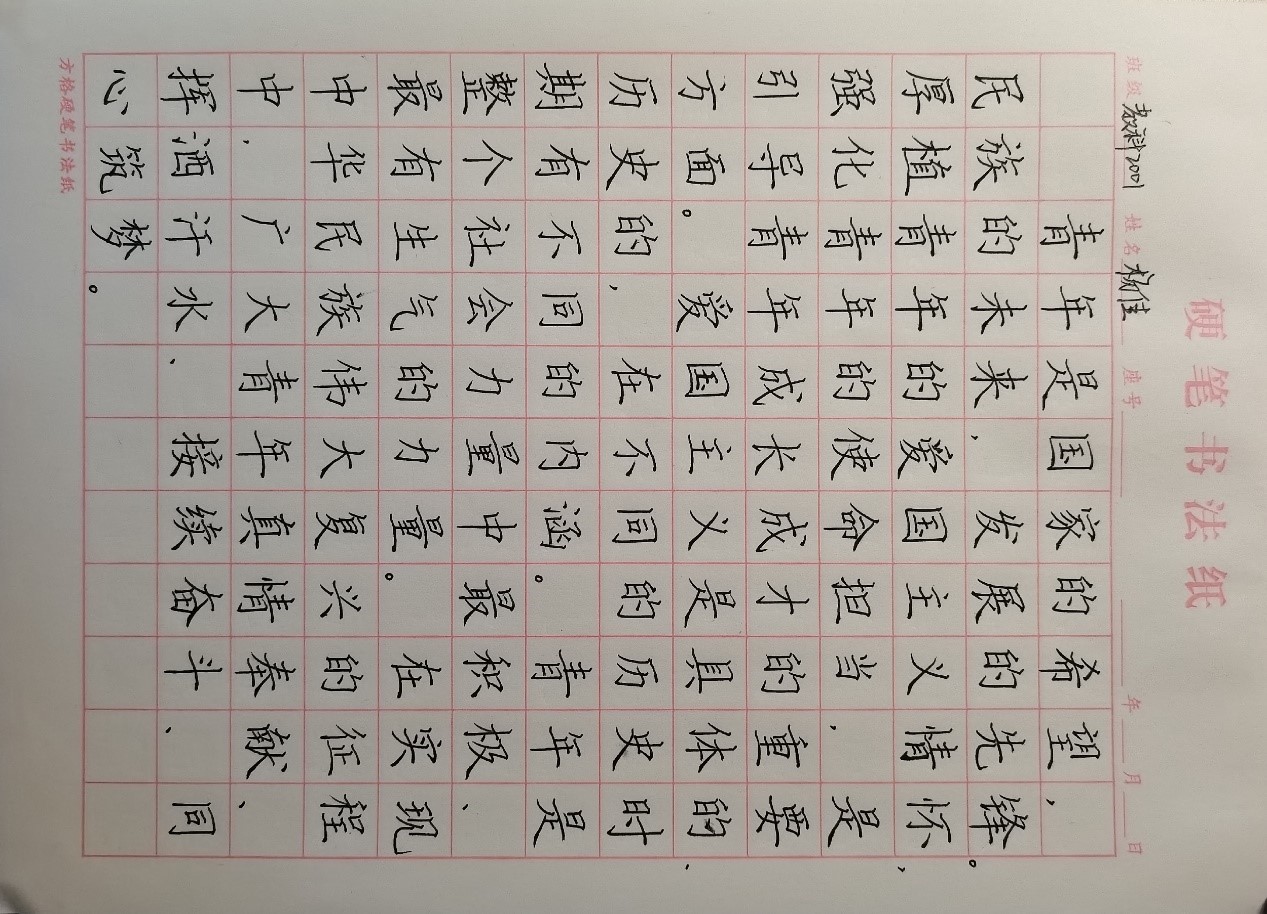 硬笔书法纸
班级 教科2001 姓名 杨佳 座号 年 月 日
青年是国家的希望，
民族的未来，发展的先锋。
厚植青年的爱国主义情怀，
强化青年的使命担当，是
引导青年成长成才的重要
方面。爱国主义是具体的、
历史的，在不同的历史时
期有不同的内涵。青年是
整个社会力量中最积极、
最有生气的力量。在实现
中华民族伟大复兴的征程
中，广大青年真情奉献、
挥洒汗水、接续奋斗、同
心筑梦。
方格硬笔书法纸